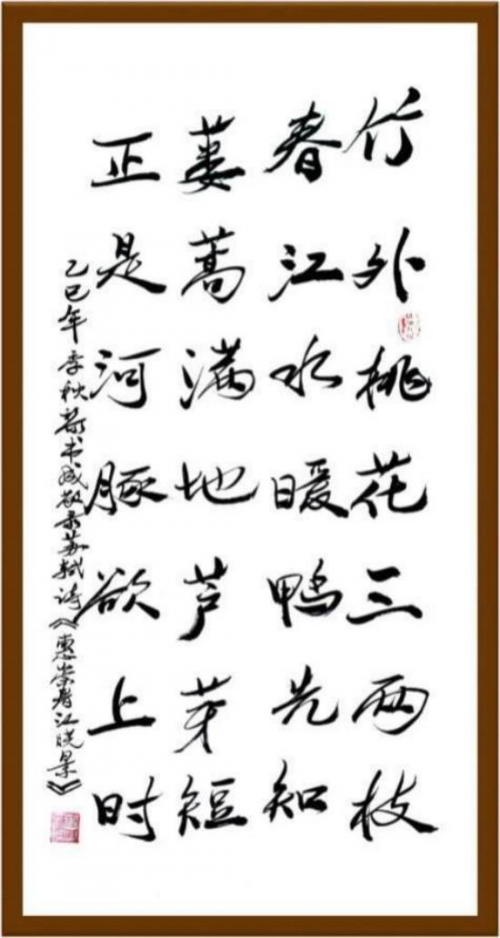 竹外桃花三两枝
春江水暖鸭先知
蒌蒿满地芦芽短
正是河豚欲上时
乙巳年季秋郡书成敬录苏轼诗《惠崇春江晓景》